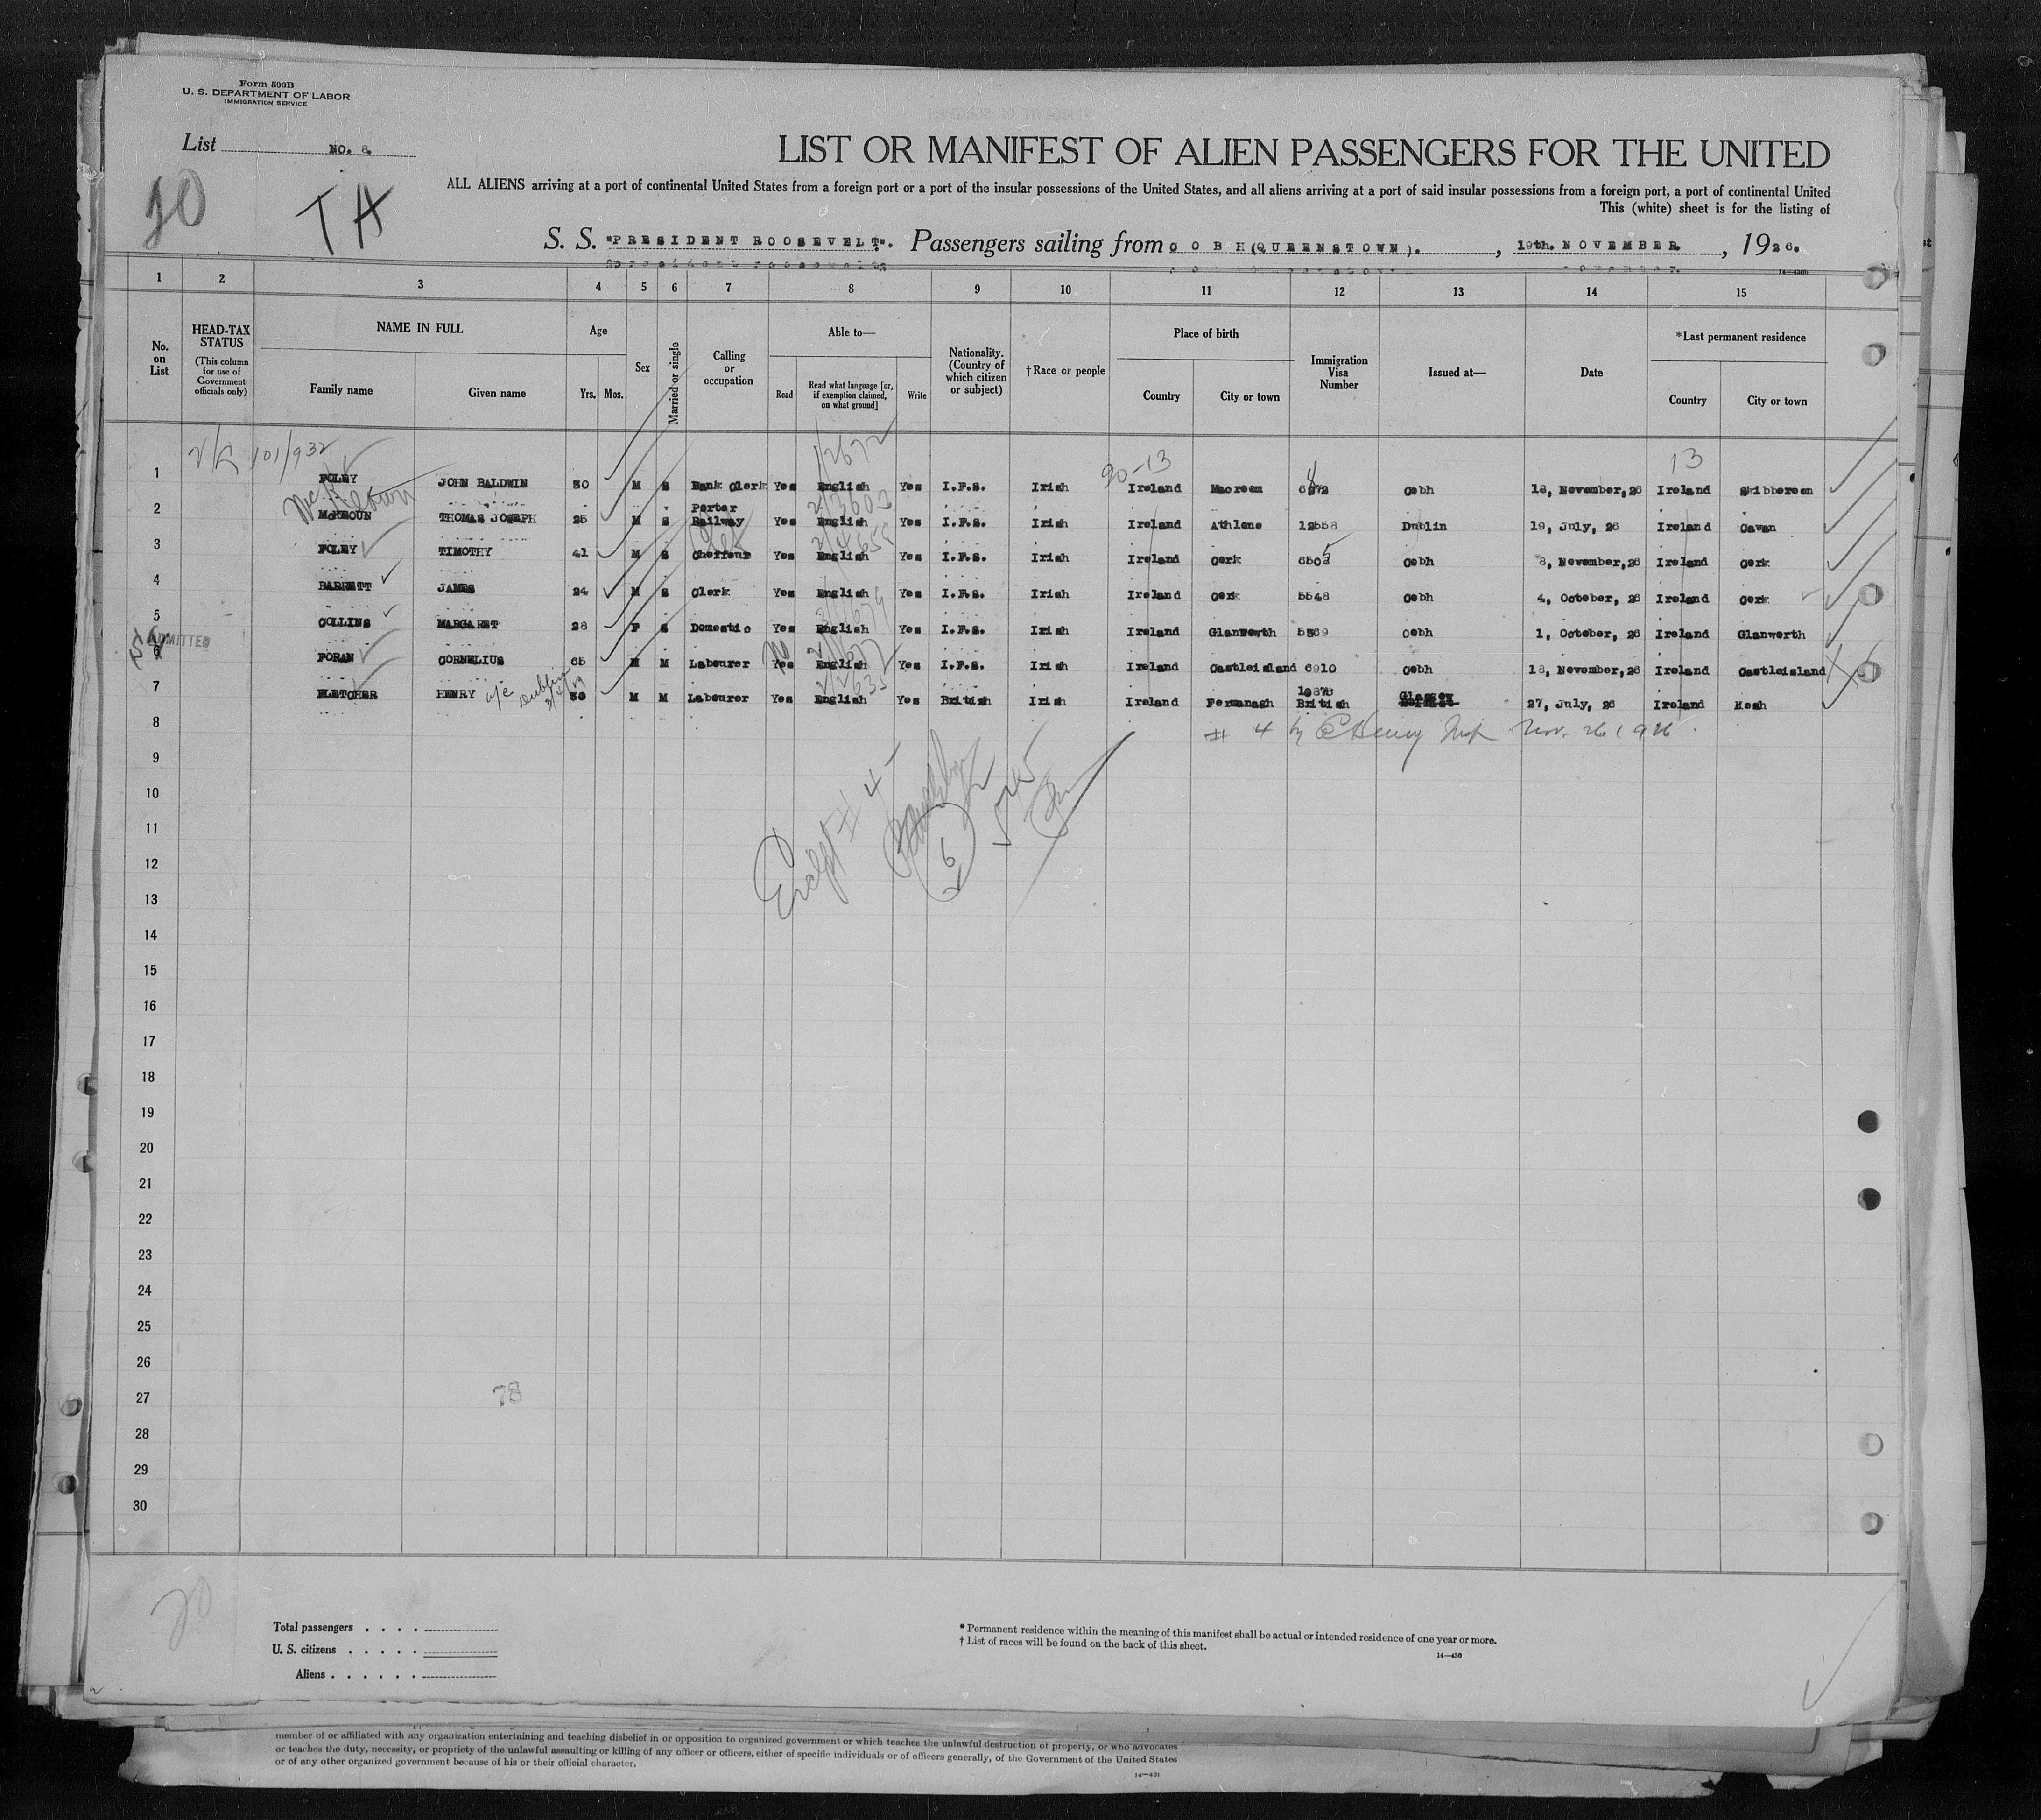 Form 500B
U. S. DEPARTMENT OF LABOR
IMMIGRATION SERVICE
List NO. 8.
LIST OR MANIFEST OF ALIEN PASSENGERS FOR THE UNITED
20 TA
ALL ALIENS arriving at a port of continental United States from a foreign port or a port of the insular possessions of the United States, and all aliens arriving at a port of said insular possessions from a foreign port, a port of continental United
This (white) sheet is for the listing of
S. S. "PRESIDENT ROOSEVELT". Passengers sailing from COBH(QUEENSTOWN). , 19th. NOVEMBER , 1926.
14—430b
1 2 3 4 5 6 7 8 9 10 11 12 13 14 15
No. on List
HEAD-TAX STATUS (This column for use of Government officials only)
NAME IN FULL
Family name Given name
Age
Yrs. Mos.
Sex
Married or single
Calling or occupation
Able to—
Read
Read what language [or, if exemption claimed, on what ground]
Write
Nationality. (Country of which citizen or subject)
† Race or people
Place of birth
Country City or town
Immigration Visa Number
Issued at—
Date
*Last permanent residence
Country City or town
101/932 2672 90-13 13
1 FOLEY JOHN BALDWIN 30 M S Bank Clerk Yes English Yes I.F.S. Irish Ireland Macroom Cobh 18, November,26 Ireland Skibbereen
McKeown 2/3603
2 McKEOUN THOMAS JOSEPH 25 M S Porter Railway Yes English Yes I.F.S. Irish Ireland Athlone 12558 Dublin 19, July, 26 Ireland Cavan
3 FOLEY TIMOTHY 41 M S Cheffeur Yes English Yes I.F.S. Irish Ireland Cork Cobh 8, November,26 Ireland Cork
4 BARRETT JAMES 24 M S Clerk Yes English Yes I.F.S. Irish Ireland Cork 5548 Cobh 4, October, 26 Ireland Cork
5 COLLINS MARGARET 28 F S Domestic Yes English Yes I.F.S. Irish Ireland Glanworth 5369 Cobh 1, October, 26 Ireland Glanworth
ADMITTED
6 FORAN CORNELIUS 65 M M Labourer Yes English Yes I.F.S. Irish Ireland Castleisland 6910 Cobh 18, November,26 Ireland Castleisland
7 FLETCHER HENRY Dublin 30 M M Labourer Yes English Yes British Irish Ireland Fermanagh British Glasgow 27, July, 26 Ireland Kesh
8 # 4 by Henry Insp Nov. 26 1926.
9
10
11 Except # 4
12 6
13
14
15
16
17
18
19
20
21
22
23
24
25
26
27 78
28
29
30
20
Total passengers . . . .
U. S. citizens . . . . .
Aliens . . . . . .
* Permanent residence within the meaning of this manifest shall be actual or intended residence of one year or more.
† List of races will be found on the back of this sheet.
14—430
member of or affiliated with any organization entertaining and teaching disbelief in or opposition to organized government or which teaches the unlawful destruction of property, or who advocates
or teaches the duty, necessity, or propriety of the unlawful assaulting or killing of any officer or officers, either of specific individuals or of officers generally, of the Government of the United States
or of any other organized government because of his or their official character.
14—431